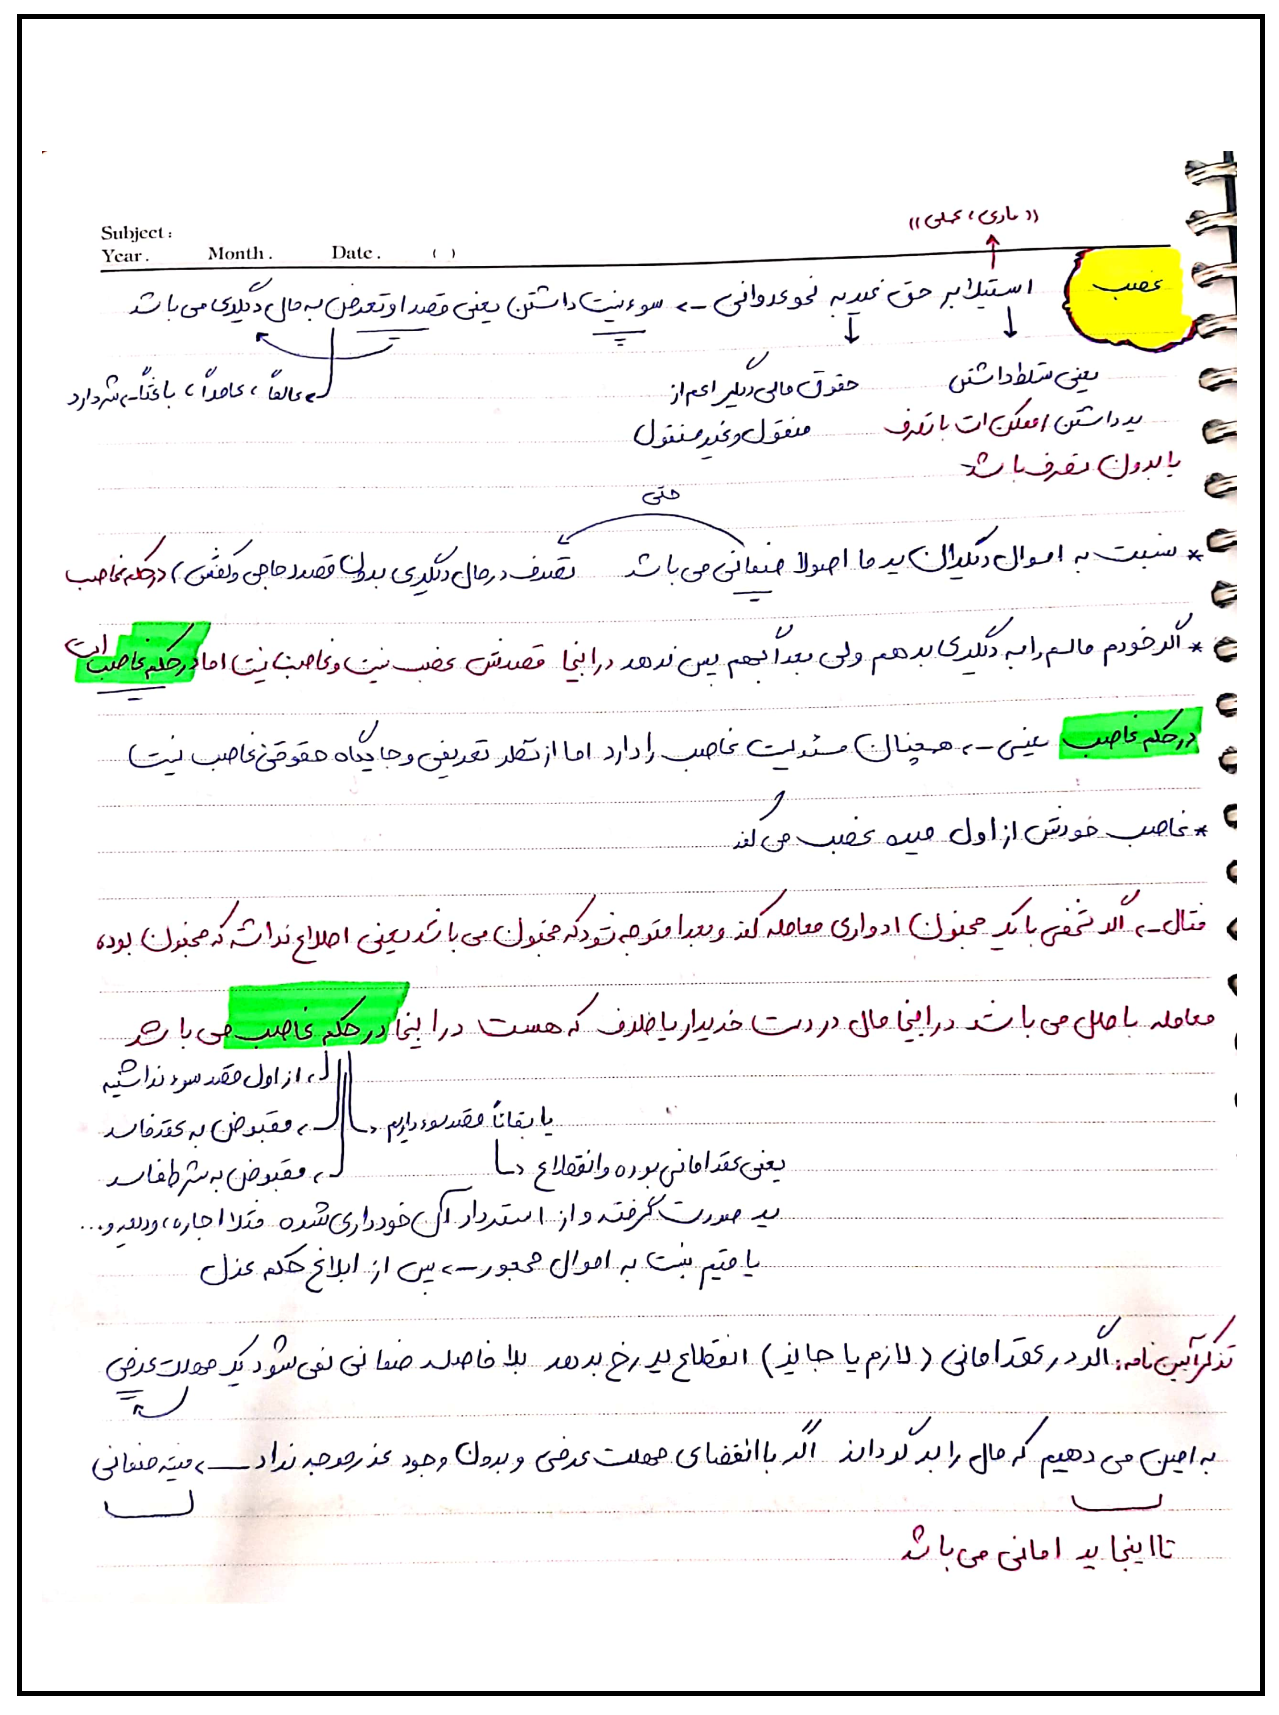 Subject :
Year .    Month .    Date .    (   )
((مادی، عملی))
غصب
استیلا بر حق غیر به نحو عدوانی -> سوءنیت داشتن یعنی قصد او تعرض به مال دیگری می باشد
یعنی تسلط داشتن    حقوق مالی دیگر اعم از    عالماً، عامداً، باشد
ید داشتن ممکن است با تصرف    منقول و غیرمنقول
یا بدون تصرف باشد
حتی
* نسبت به اموال دیگران ید ما اصولا ضمانی می باشد    تصرف در مال دیگری بدون قصد (حاجی و کفش) در حکم غاصب
* اگر خودم مالم را به دیگری بدهم ولی بعداً بهم پس ندهد در اینجا قصدش غصب نیست و غاصب نیست اما در حکم غاصب است
در حکم غاصب یعنی -> همچنان مسئولیت غاصب را دارد اما از نظر تعریفی و جایگاه حقوقی غاصب نیست
* غاصب خودش از اول میره غصب می کند
مثال -> اگر شخصی با یک مجنون ادواری معامله کند و بعدا متوجه شود که مجنون می باشد یعنی اطلاع نداشته که مجنون بوده
معامله باطل می باشد در اینجا مال در دست خریدار یا طرف که هست در اینجا در حکم غاصب می باشد
از اول قصد سوء نداشته
یا بقائاً قصد سوء داریم    مقبوض به عقد فاسد
یعنی عقد امانی بوده و انقطاع    مقبوض به شرط فاسد
ید صورت گرفته و از استرداد آن خودداری شده مثلا اجاره، ودیعه و...
یا قیم نسبت به اموال محجور -> پس از ابلاغ حکم عزل
تذکر آئین نامه: اگر در عقد امانی (لازم یا جایز) انقطاع ید رخ بدهد بلا فاصله ضمانی نمی شود یک مهلت عرفی
به امین می دهیم که مال را برگرداند اگر با انقضای مهلت عرفی و بدون وجود عذر موجه نداد -> میشه ضمانی
تا اینجا ید امانی می باشد